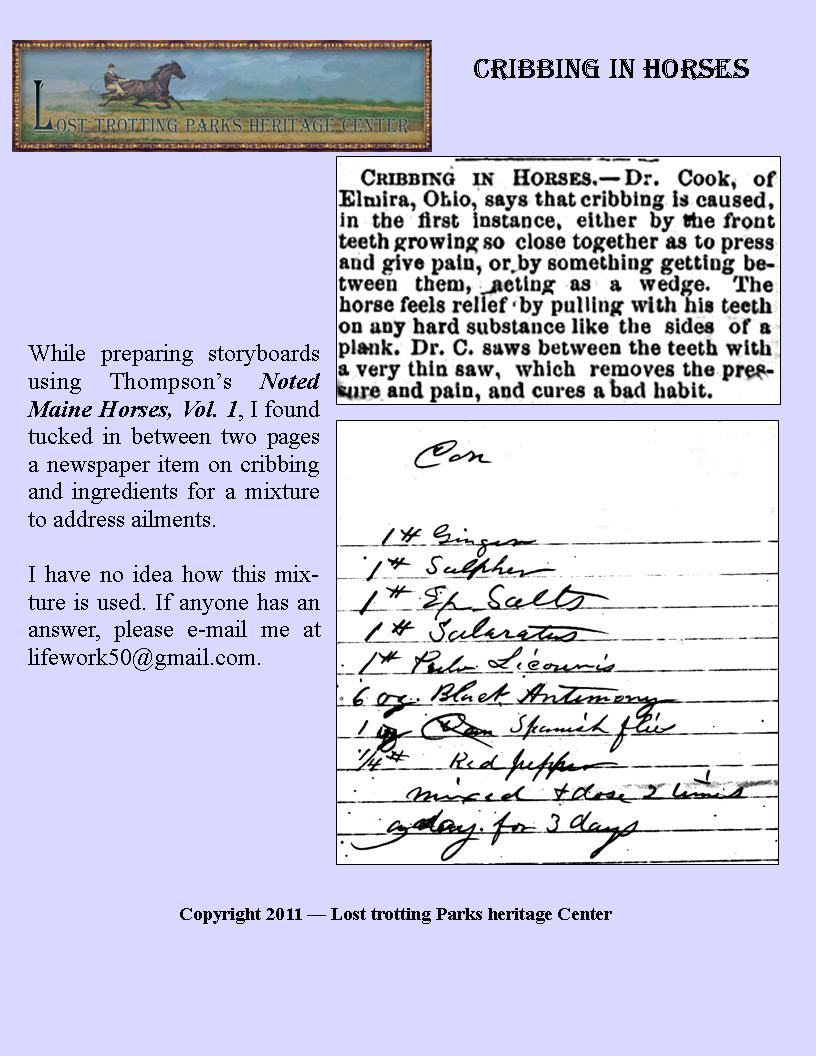 LOST TROTTING PARKS HERITAGE CENTER
CRIBBING IN HORSES
CRIBBING IN HORSES.—Dr. Cook, of
Elmira, Ohio, says that cribbing is caused,
in the first instance, either by the front
teeth growing so close together as to press
and give pain, or by something getting be-
tween them, acting as a wedge. The
horse feels relief by pulling with his teeth
on any hard substance like the sides of a
plank. Dr. C. saws between the teeth with
a very thin saw, which removes the pres-
sure and pain, and cures a bad habit.
While preparing storyboards
using Thompson's Noted
Maine Horses, Vol. 1, I found
tucked in between two pages
a newspaper item on cribbing
and ingredients for a mixture
to address ailments.
I have no idea how this mix-
ture is used. If anyone has an
answer, please e-mail me at
lifework50@gmail.com.
Con
1 # Ginger
1 # Sulpher
1 # Ep Salts
1 # Salaratus
1 #
6 oz. Black Antimony
1 Spanish flie
1/4 # Red pepper
mixed + dose 2 times
a day. for 3 days
Copyright 2011 — Lost trotting Parks heritage Center